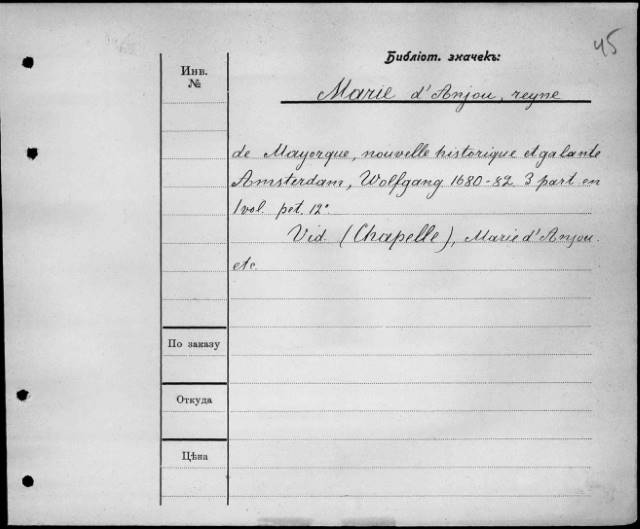 45
Библіот. значекъ:
Инв.
№
Marie d'Anjou, reyne
de Mayorque, nouvelle historique et galante
Amsterdam, Wolfgang 1680-82. 3 part. en
1 vol. pet. 12°.
Vid. (Chapelle), Marie d'Anjou.
etc.
По заказу
Откуда
Цѣна